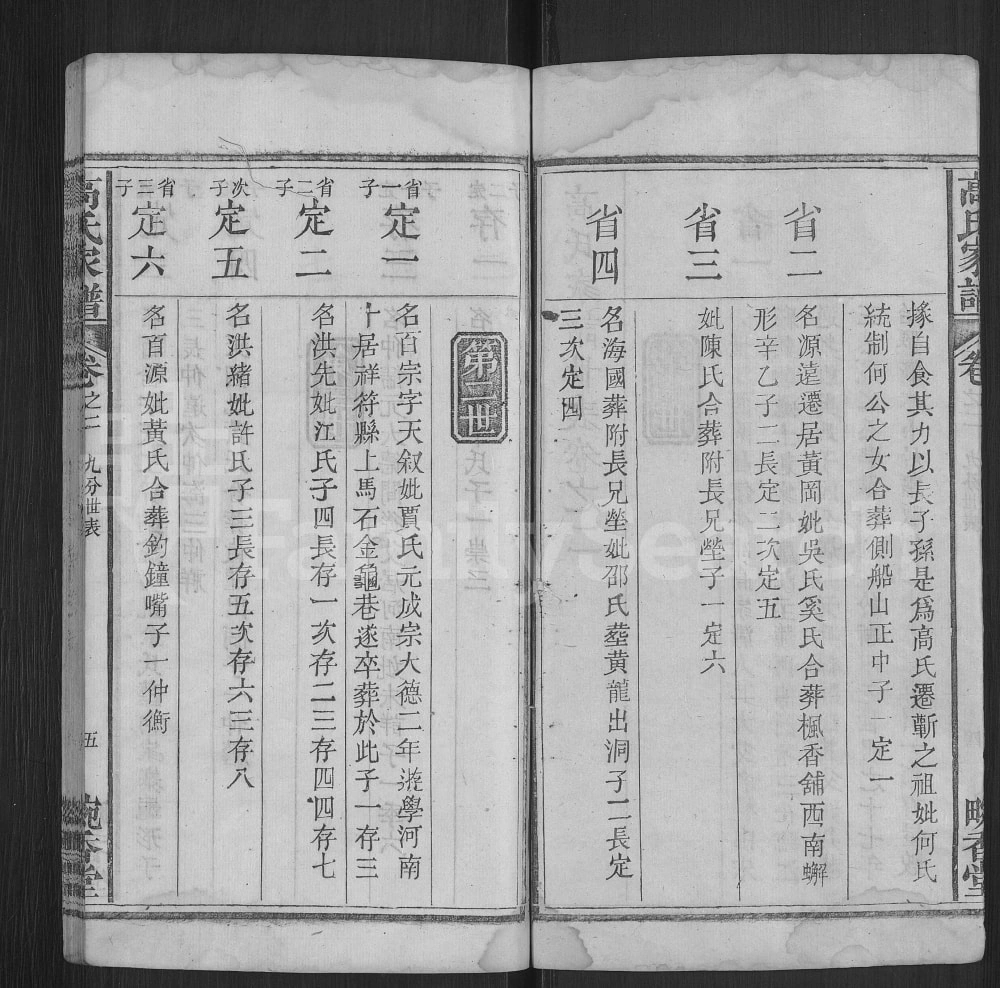 高氏家譜 卷 晚香堂
掾自食其力以長子孫是爲高氏遷蘄之祖妣何氏
統制何公之女合葬側船山正中子一定一
省二 名源遠遷居黃岡妣吳氏奚氏合葬楓香舖西南蠏
形辛乙子二長定二次定五
省三 妣陳氏合葬附長兄塋子一定六
省四 名海國葬附長兄塋妣邵氏葬黃龍出洞子二長定
三次定四
第二世
省一子 定一 名百宗字天叙妣賈氏元成宗大德二年遊學河南
卜居祥符縣上馬石金龜巷遂卒葬於此子一存三
省二子 定二 名洪先妣江氏子四長存一次存二三存四四存七
次子 定五 名洪緒妣許氏子三長存五次存六三存八
省三子 定六 名百源妣黃氏合葬釣鐘嘴子一仲衡
高氏家譜 卷之二 九分世表 五 晚香堂